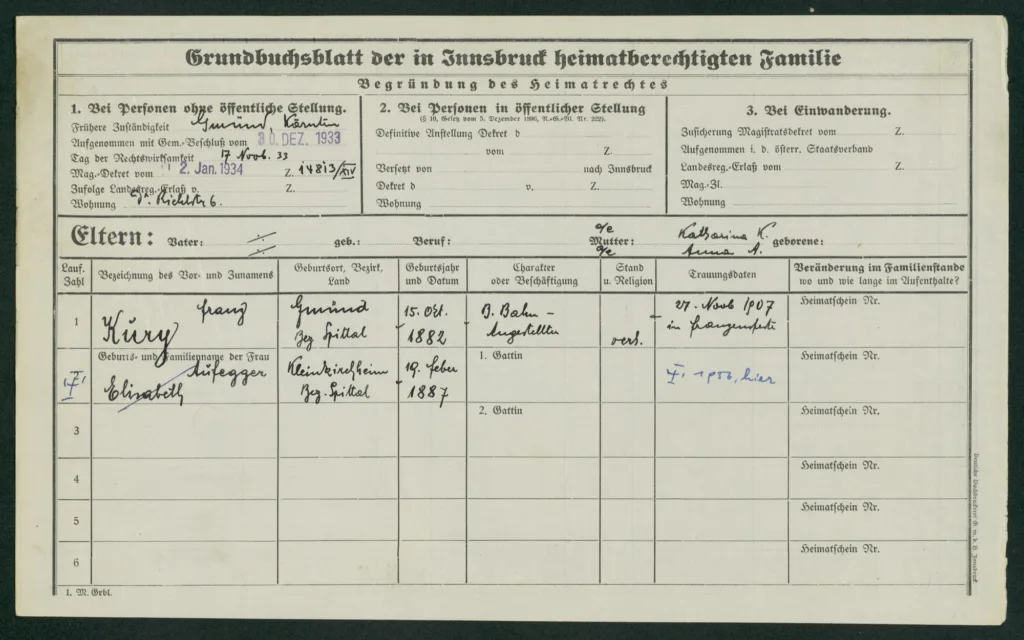 Grundbuchsblatt der in Innsbruck heimatberechtigten Familie
Begründung des Heimatrechtes
1. Bei Personen ohne öffentliche Stellung.
Frühere Zuständigkeit Gmünd, Kärnten
Aufgenommen mit Gem.-Beschluß vom 30. DEZ. 1933
Tag der Rechtswirksamkeit 17 Novb. 33
Mag.-Dekret vom 2. Jan. 1934 Z. 14813/XIV
Zufolge Landesreg.-Erlaß v. Z.
Wohnung Dr.
2. Bei Personen in öffentlicher Stellung
(§ 10, Gesetz vom 5. Dezember 1896, R.-G.-Bl. Nr. 222).
Definitive Anstellung Dekret d
vom Z.
Versetzt von nach Innsbruck
Dekret d v. Z.
Wohnung
3. Bei Einwanderung.
Zusicherung Magistratsdekret vom Z.
Aufgenommen i. d. österr. Staatsverband
Landesreg.-Erlaß vom Z.
Mag.-Zl.
Wohnung
Eltern: Vater: ·/· ·/· geb.: Beruf: Mutter: o/e Katharina K. o/e Anna A. geborene:
Lauf. Zahl
Bezeichnung des Vor- und Zunamens
Geburtsort, Bezirk, Land
Geburtsjahr und Datum
Charakter oder Beschäftigung
Stand u. Religion
Trauungsdaten
Veränderung im Familienstande
wo und wie lange im Aufenthalte?
1 Franz Gmünd 15. Okt. B. Bahn- 27. Novb 1907 Heimatschein Nr.
Kury Bez Spittal 1882 Angestellter verh. in Franzensfeste
Geburts- und Familienname der Frau 1. Gattin Heimatschein Nr.
Aufegger Kleinkirchheim 19. Feber 1956, hier
Elisabeth Bez. Spittal 1887
3 2. Gattin Heimatschein Nr.
4 Heimatschein Nr.
5 Heimatschein Nr.
6 Heimatschein Nr.
1. M. Grbl.